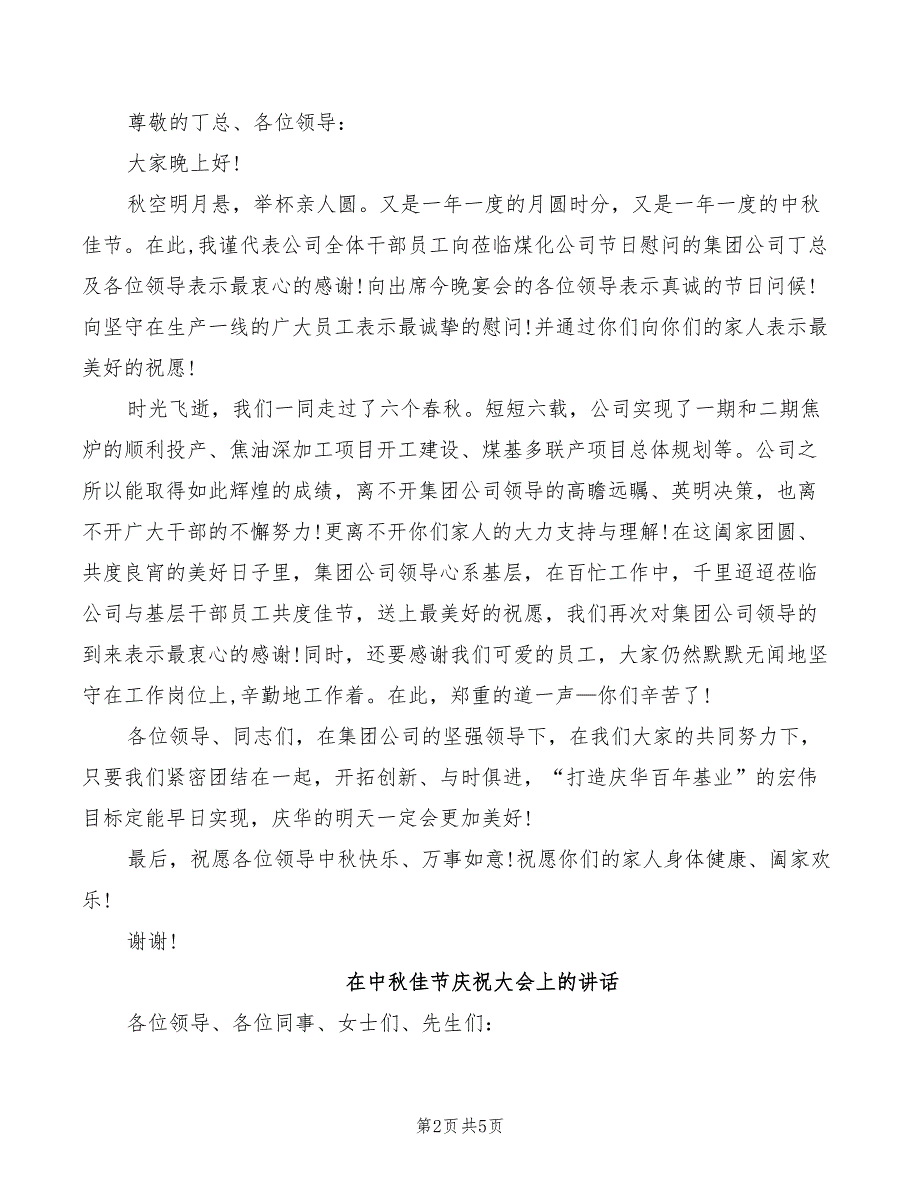 尊敬的丁总、各位领导:
大家晚上好!
秋空明月悬，举杯亲人圆。又是一年一度的月圆时分，又是一年一度的中秋
佳节。在此,我谨代表公司全体干部员工向莅临煤化公司节日慰问的集团公司丁总
及各位领导表示最衷心的感谢!向出席今晚宴会的各位领导表示真诚的节日问候!
向坚守在生产一线的广大员工表示最诚挚的慰问!并通过你们向你们的家人表示最
美好的祝愿!
时光飞逝，我们一同走过了六个春秋。短短六载，公司实现了一期和二期焦
炉的顺利投产、焦油深加工项目开工建设、煤基多联产项目总体规划等。公司之
所以能取得如此辉煌的成绩，离不开集团公司领导的高瞻远瞩、英明决策，也离
不开广大干部的不懈努力!更离不开你们家人的大力支持与理解!在这阖家团圆、
共度良宵的美好日子里，集团公司领导心系基层，在百忙工作中，千里迢迢莅临
公司与基层干部员工共度佳节，送上最美好的祝愿，我们再次对集团公司领导的
到来表示最衷心的感谢!同时，还要感谢我们可爱的员工，大家仍然默默无闻地坚
守在工作岗位上,辛勤地工作着。在此，郑重的道一声—你们辛苦了!
各位领导、同志们，在集团公司的坚强领导下，在我们大家的共同努力下，
只要我们紧密团结在一起，开拓创新、与时俱进，“打造庆华百年基业”的宏伟
目标定能早日实现，庆华的明天一定会更加美好!
最后，祝愿各位领导中秋快乐、万事如意!祝愿你们的家人身体健康、阖家欢
乐!
谢谢!
在中秋佳节庆祝大会上的讲话
各位领导、各位同事、女士们、先生们:
第2页 共5页